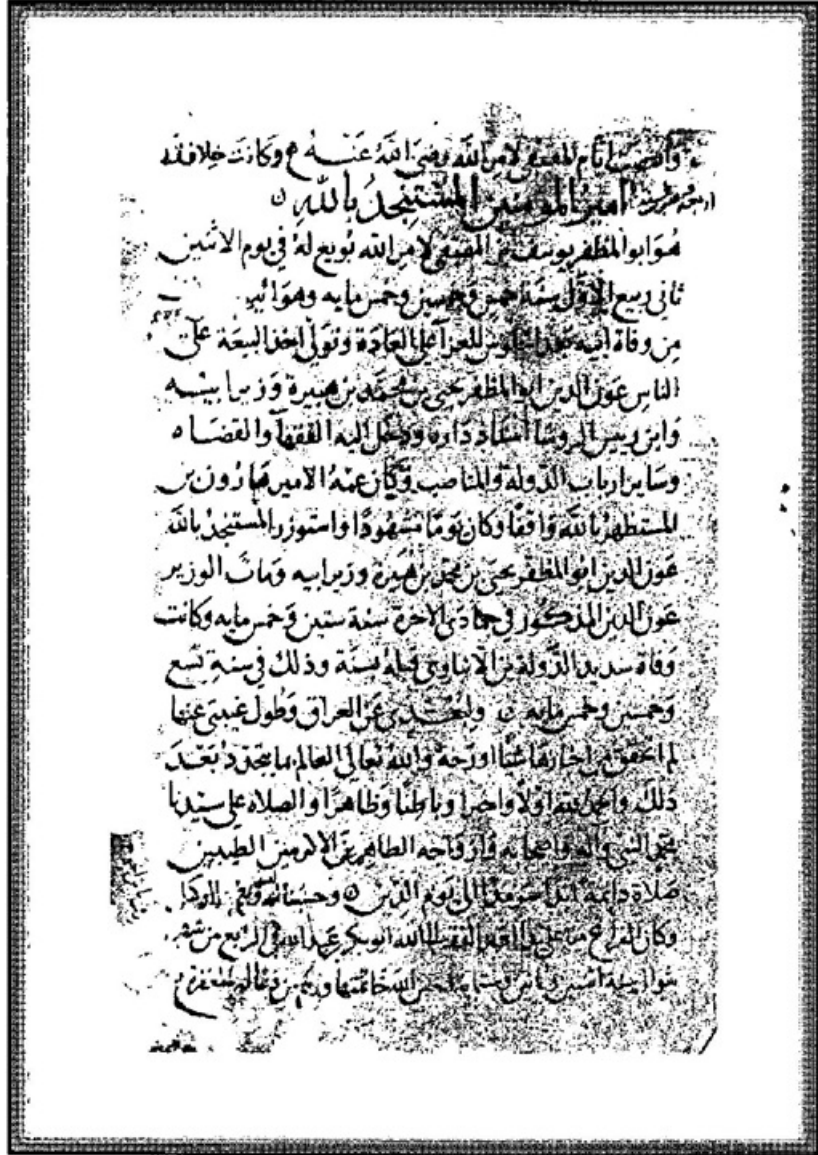 وانقضت ايام المقتفى لامر الله رضى الله عنه وكانت خلافته
امير المومنين المستنجد بالله
هو ابو المظفر يوسف بن المقتفى لامر الله بويع له في يوم الاثنين
ثاني ربيع الاول سنة خمس وخمسين وخمس مايه وهو
من وفاة ابيه للعزآ على العادة وتولى اخذ البيعة على
الناس عون الدين ابو المظفر يحيى بن محمد بن هبيرة وزير ابيه
وابن رييس الروسا استاذ داره ودخل اليه الفقهآ والقضاه
وساير ارباب الدولة والمناصب وكان عمه الامير هارون بن
المستظهر بالله واقفا وكان يوما مشهودا واستوزر المستنجد بالله
عون الدين ابو المظفر يحيى بن محمد بن هبيرة وزير ابيه ومات الوزير
عون الدين المذكور في جمادى الاخرة سنة ستين وخمس مايه وكانت
وفاة سديد الدولة بن الانباري قبله بسنة وذلك في سنة تسع
وخمسين وخمس مايه ولبعدي عن العراق وطول غيبتى عنها
لم اتحقق من اخبارها شيا اورخه والله تعالى العالم بما يتجدد بعد
ذلك والحمد لله اولا واخرا وباطنا وظاهرا والصلاه على سيدنا
محمد النبى واله واصحابه وازواجه الطاهرين الاكرمين الطيبين
صلاة دايمة ابدا سرمدا الى يوم الدين وحسبنا الله ونعم الوكيل
وكان الفراغ منه على يد العبد الفقير الى الله ابو بكر عبد الله في الرابع من شهر
الله خاتمتها